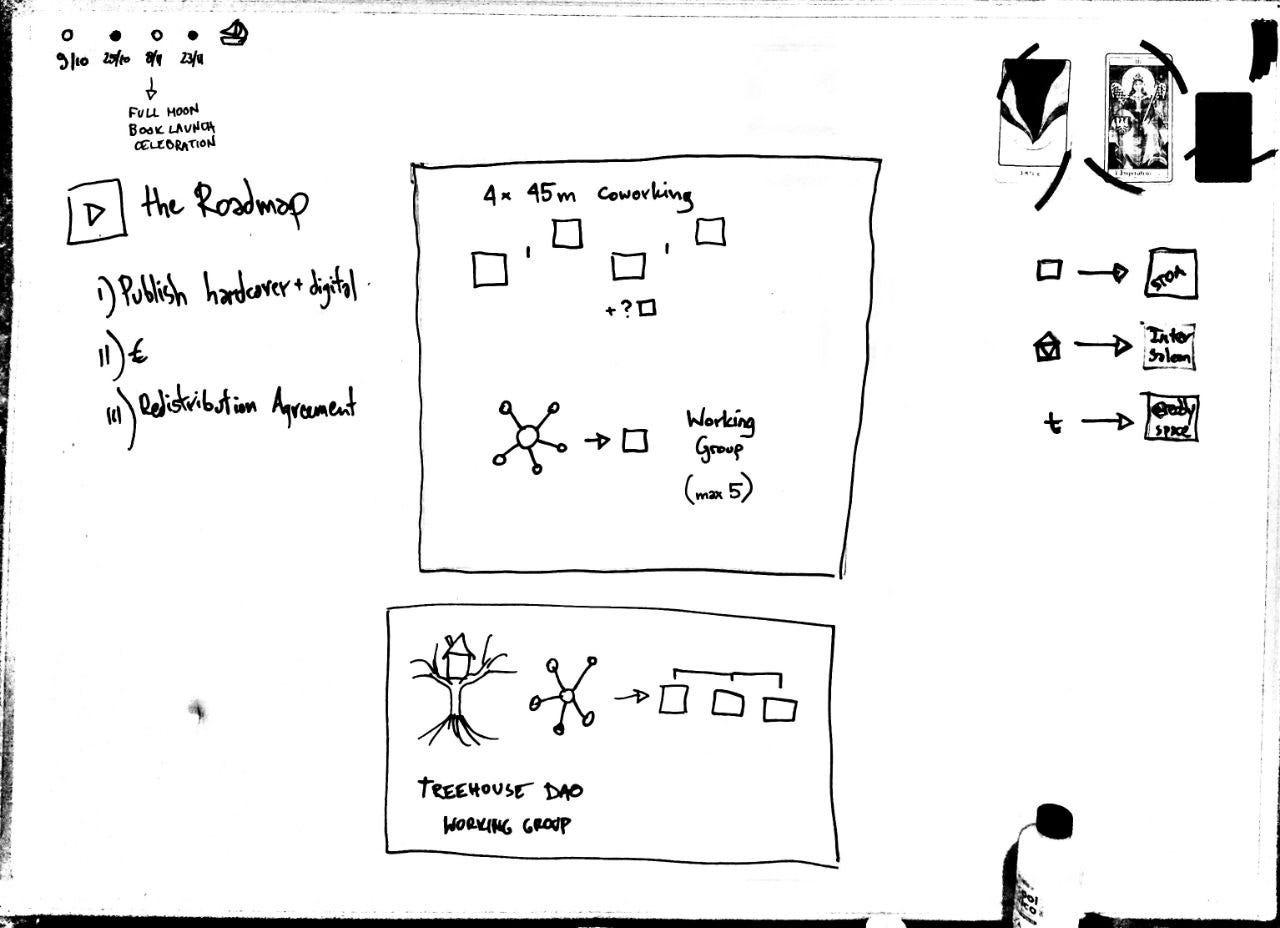 9/10
25/10
8/11
23/11
FULL MOON
BOOK LAUNCH
CELEBRATION
the Roadmap
I) Publish hardcover + digital
II) €
III) Redistribution Agreement
4x 45m coworking
+ ?
Working
Group
(max 5)
TREEHOUSE DAO
WORKING GROUP
STOA
Inter
t
space